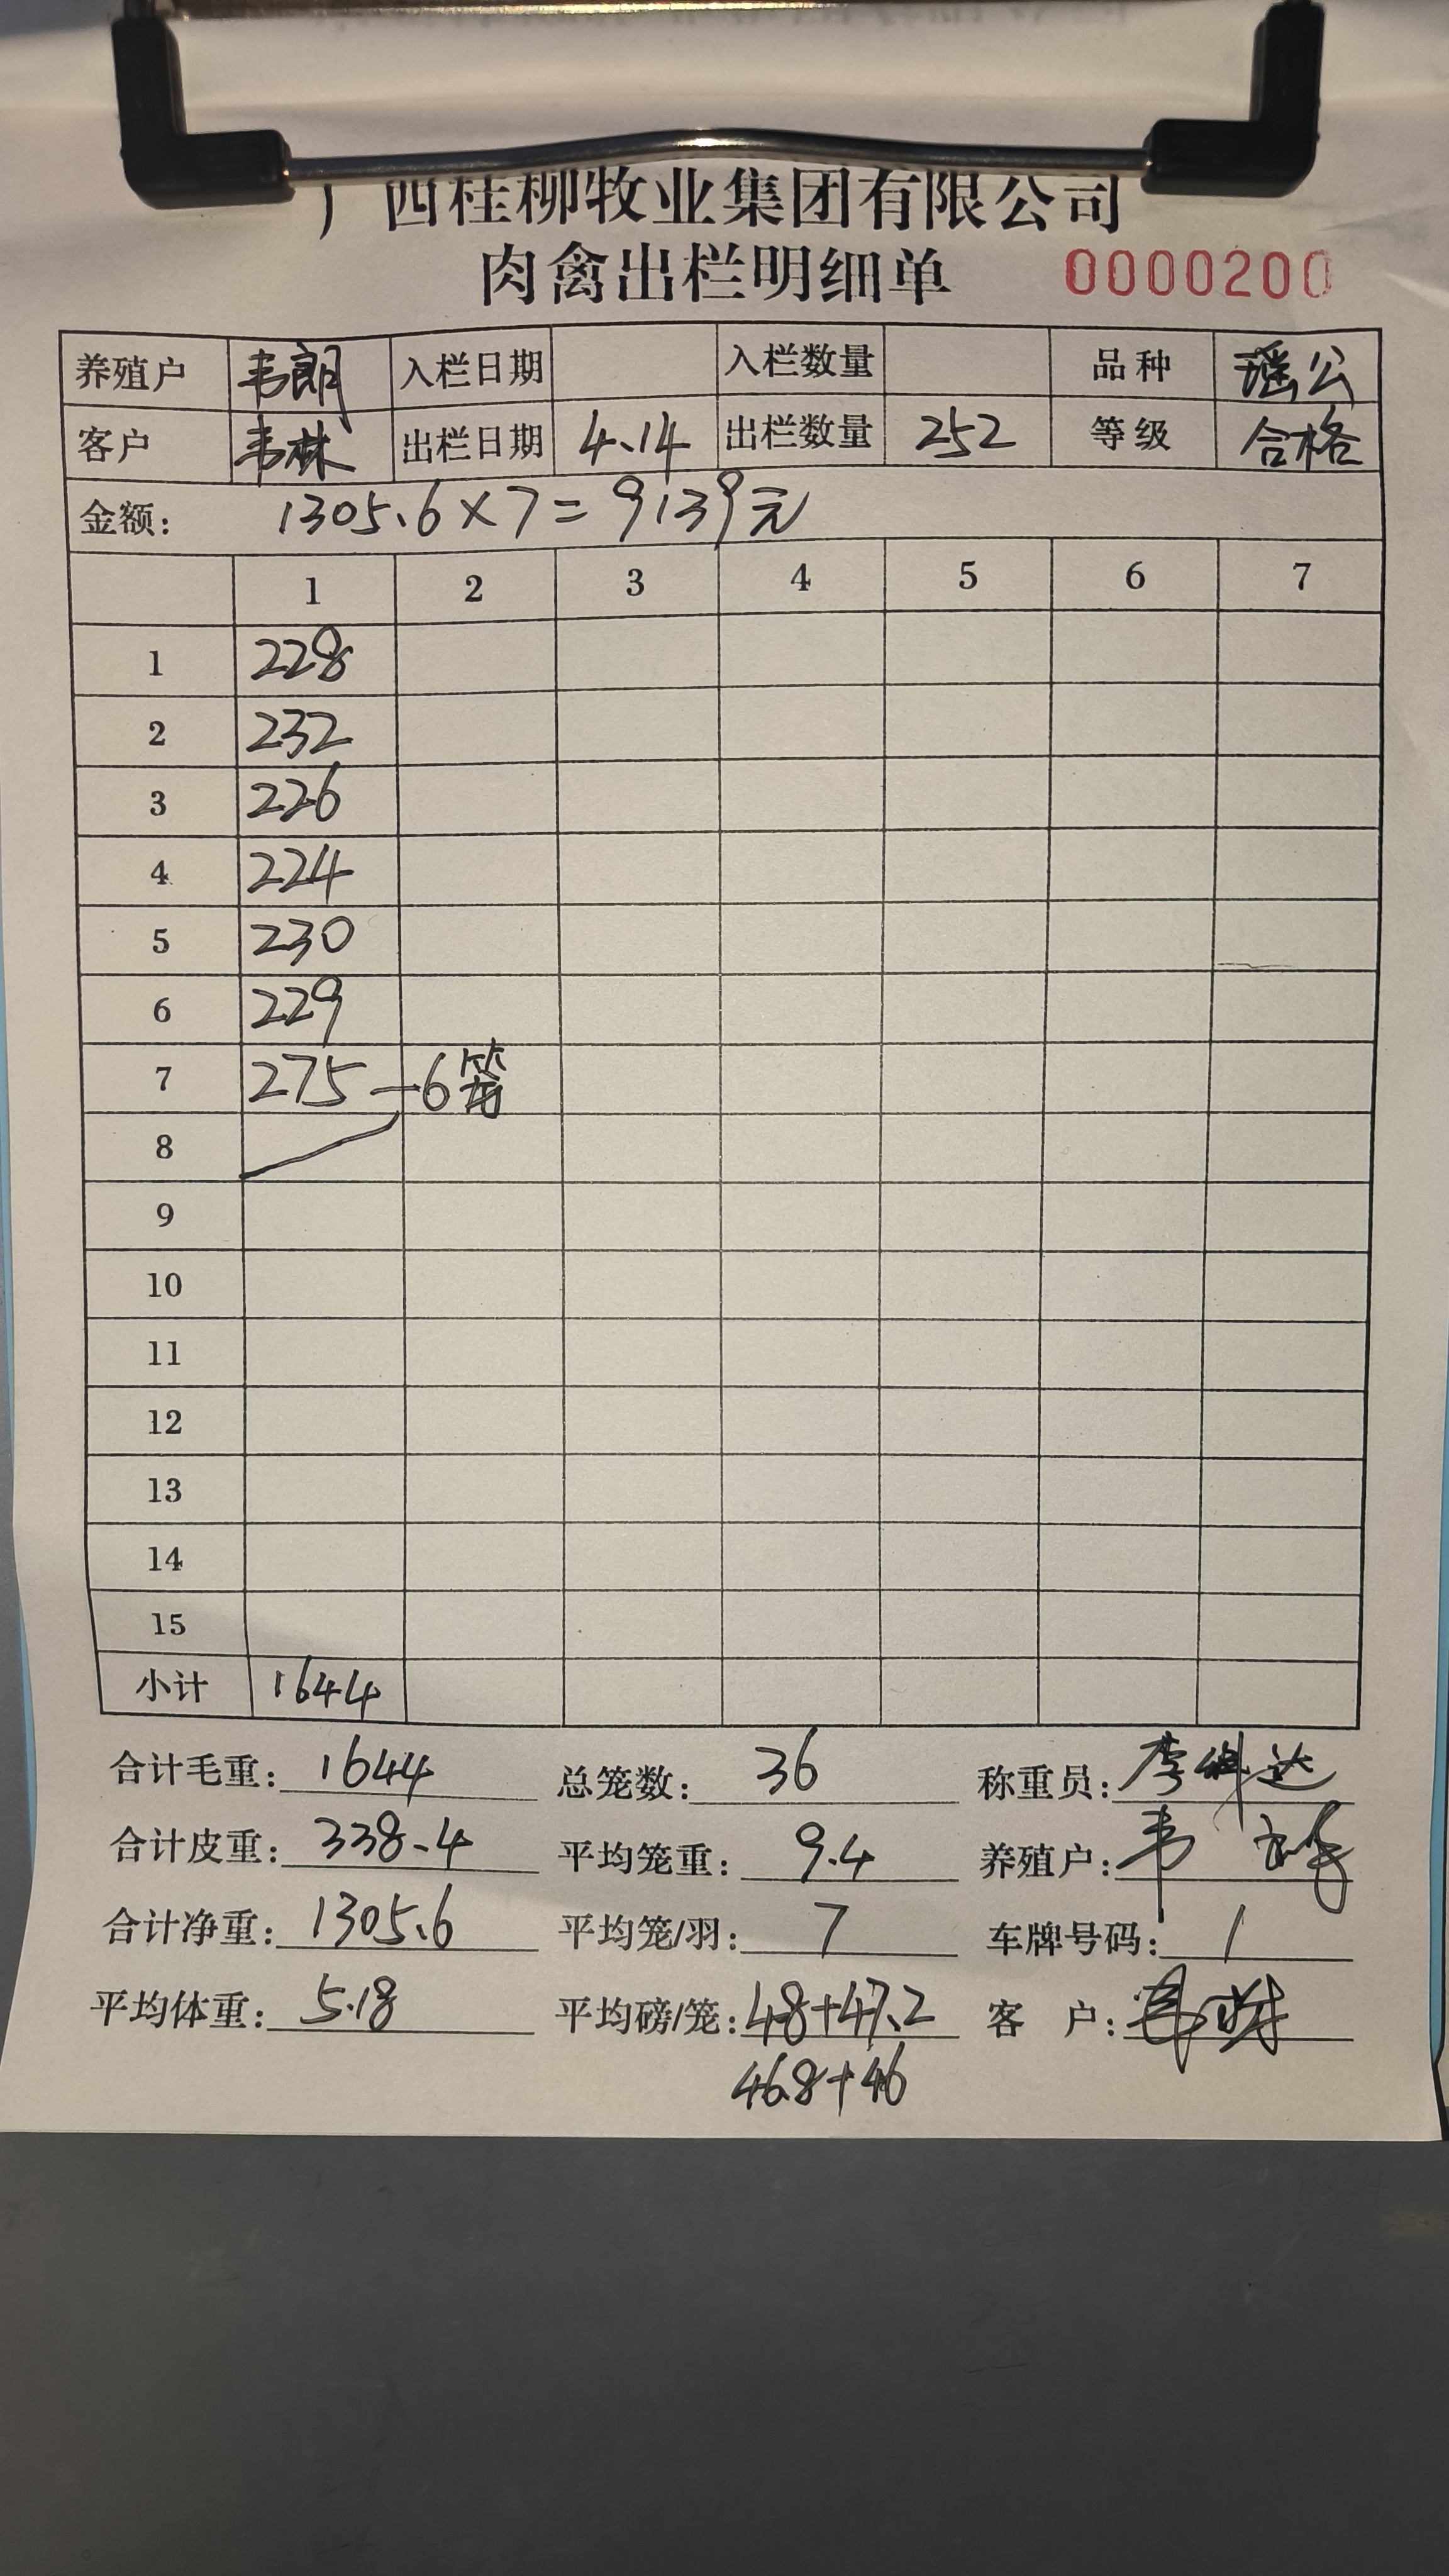 广西桂柳牧业集团有限公司
肉禽出栏明细单 0000200
养殖户 韦朗 入栏日期 入栏数量 品种 瑶公
客户 韦林 出栏日期 4.14 出栏数量 252 等级 合格
金额: 1305.6×7=9139元
1 2 3 4 5 6 7
1 228
2 232
3 226
4 224
5 230
6 229
7 275 —6笼
8
9
10
11
12
13
14
15
小计 1644
合计毛重: 1644 总笼数: 36 称重员:
合计皮重: 338.4 平均笼重: 9.4 养殖户: 韦
合计净重: 1305.6 平均笼/羽: 7 车牌号码: /
平均体重: 5.18 平均磅/笼: 48+47.2 客 户:
46.8+46